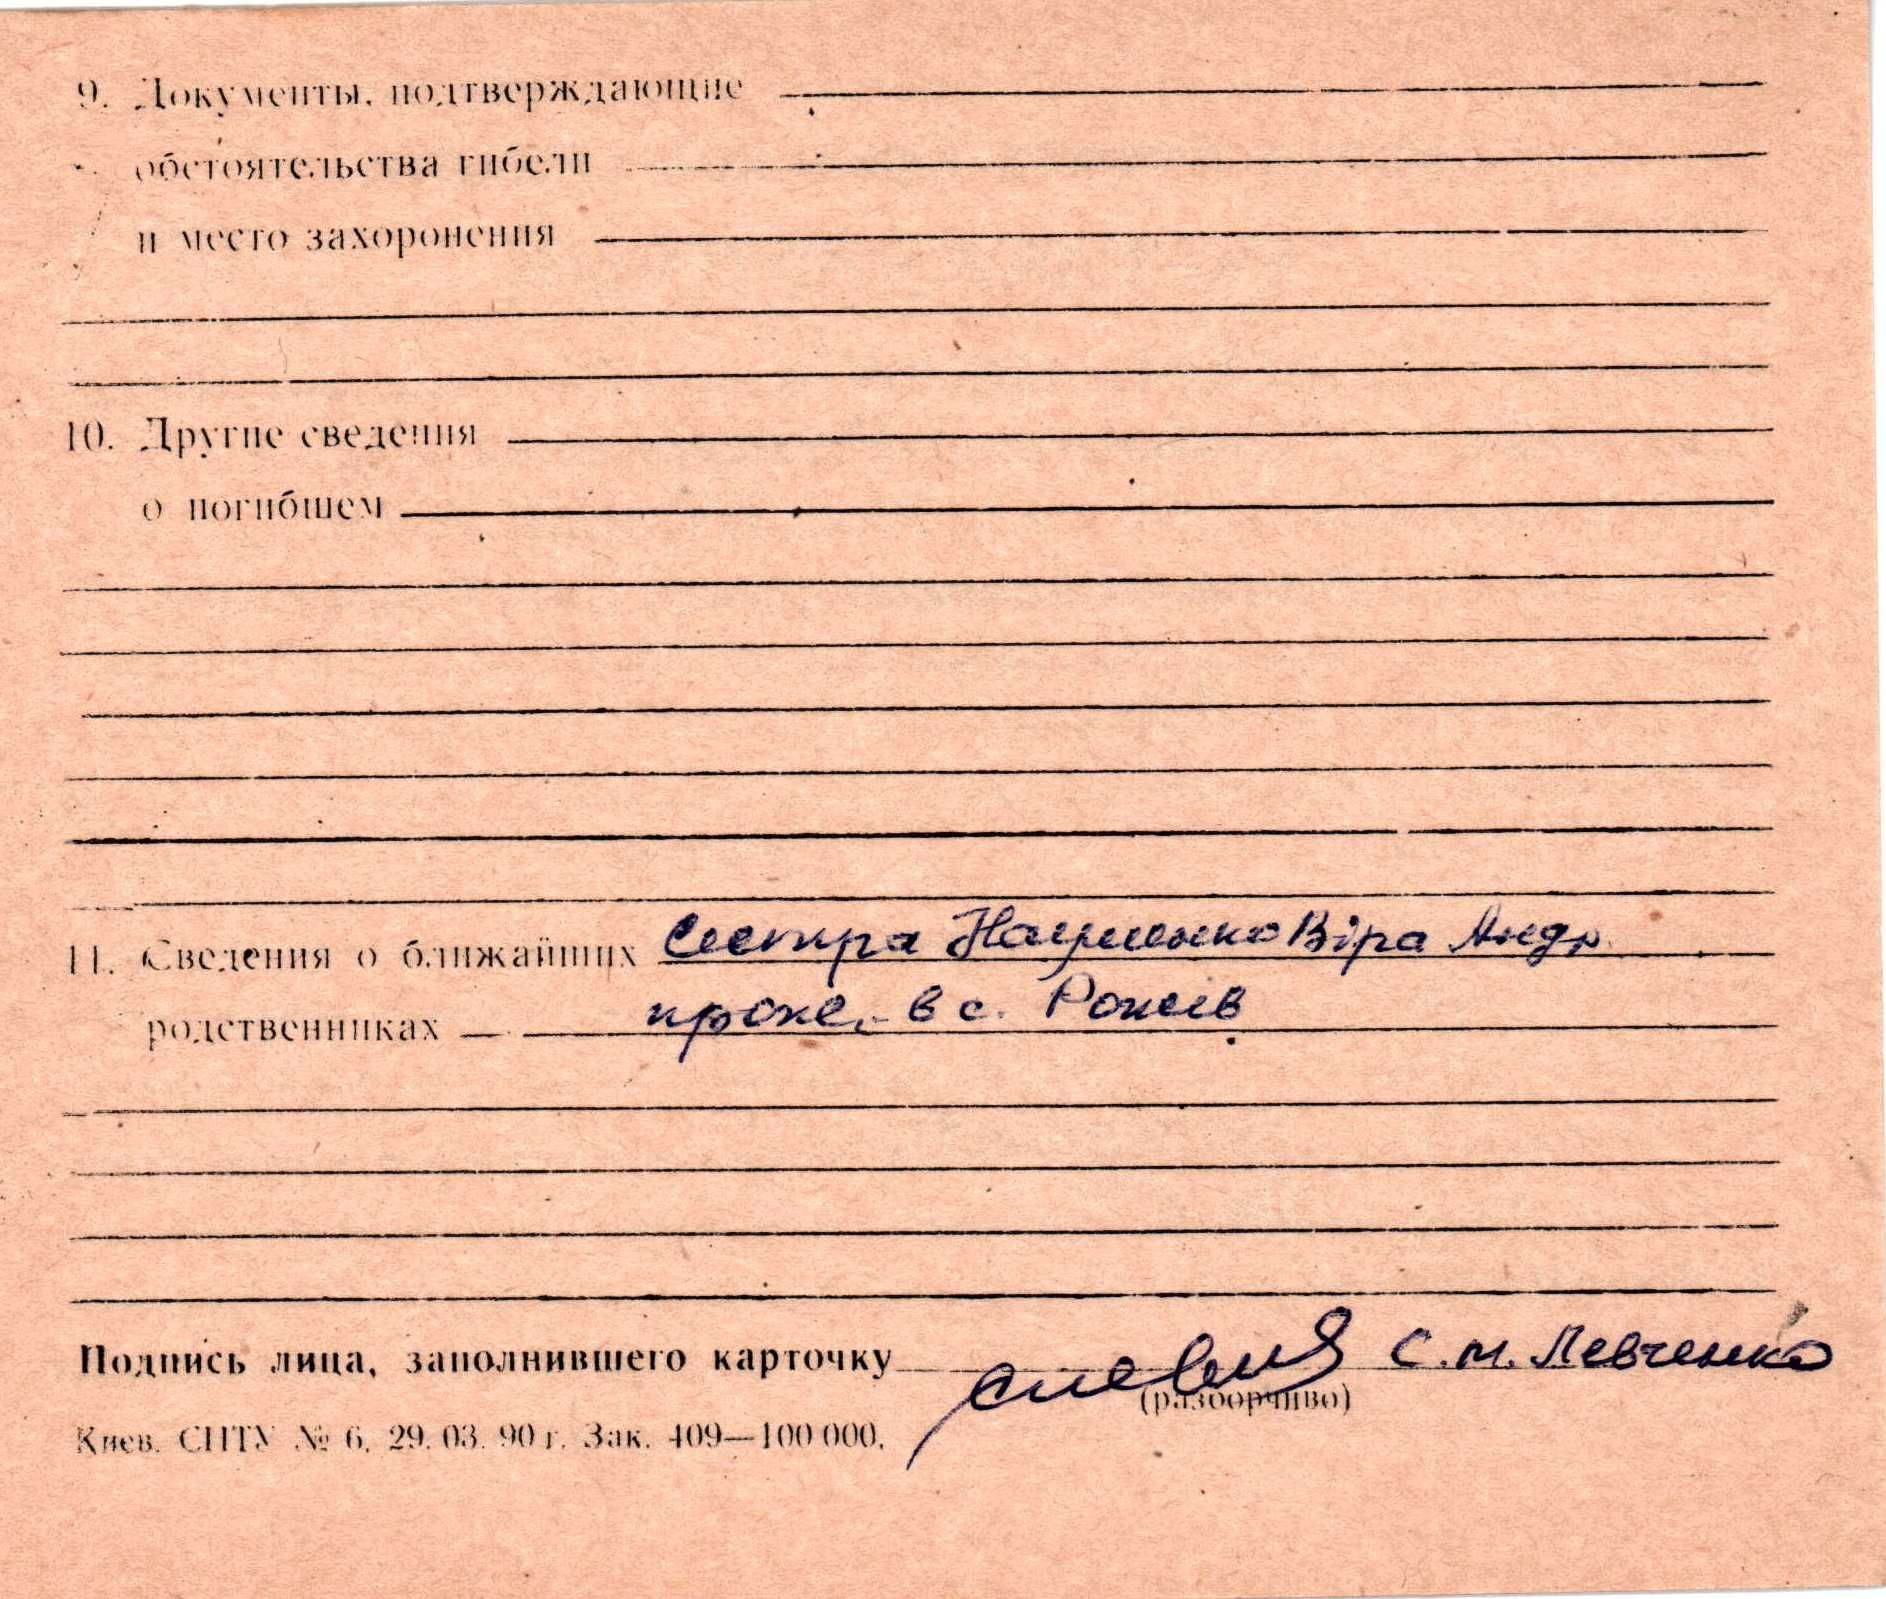 9. Документы, подтверждающие
обстоятельства гибели
и место захоронения
10. Другие сведения
о погибшем
11. Сведения о ближайших Сестра Науменко Віра Андр.
родственниках прож. в с. Рожев
Подпись лица, заполнившего карточку С. М. Левченко
(разборчиво)
Киев. СПТУ № 6. 29. 03. 90 г. Зак. 409—100 000.